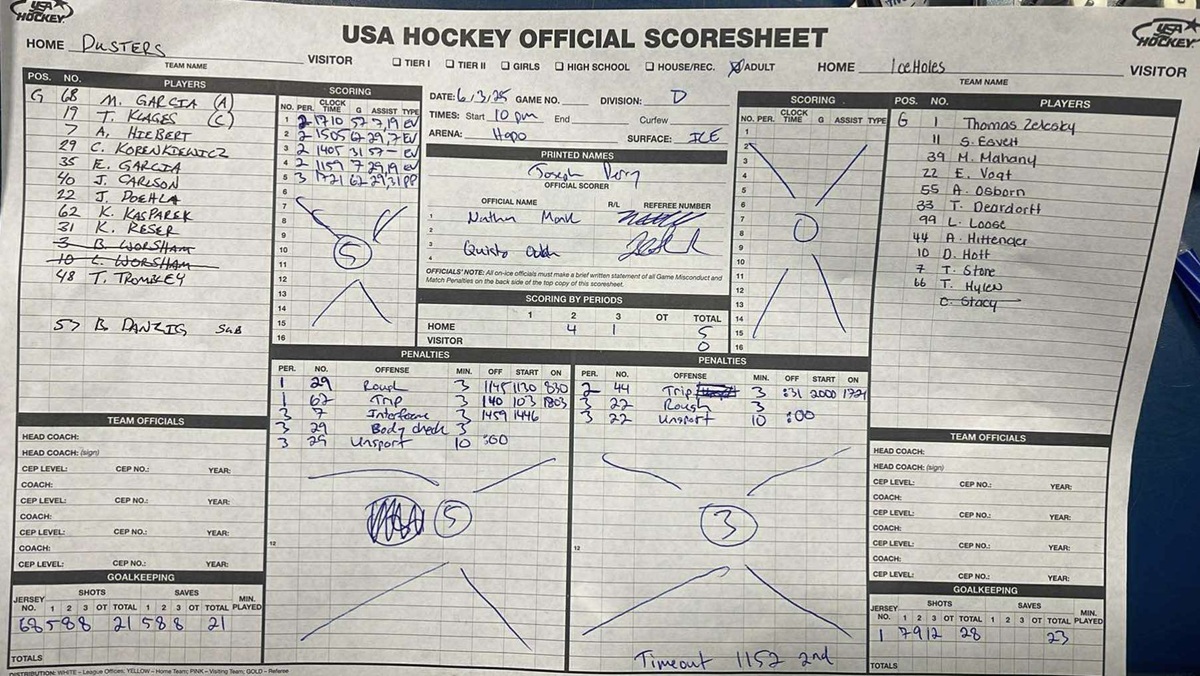 USA HOCKEY
USA HOCKEY
USA HOCKEY OFFICIAL SCORESHEET
HOME DUSTERS VISITOR
TEAM NAME
☐ TIER I ☐ TIER II ☐ GIRLS ☐ HIGH SCHOOL ☐ HOUSE/REC. ☒ ADULT
HOME IceHoles VISITOR
TEAM NAME
POS. NO. PLAYERS
G 68 M. GARCIA (A)
19 T. KLAGES (C)
7 A. HIEBERT
29 C. KORENKIEWICZ
35 E. GARCIA
40 J. CARLSON
22 J. POEHLA
62 K. KASPAREK
31 K. RESER
3 B. WORSHAM
10 L. WORSHAM
48 T. TROMBLEY
57 B. DANZIG SUB
SCORING
NO. PER. CLOCK TIME G ASSIST TYPE
1 2 1710 57 7,19 EV
2 2 1505 62 29,7 EV
3 2 1405 31 57 - EV
4 2 1159 7 29,19 EV
5 3 1721 62 29,31 PP
6
7
8
9
10
11
12
13
14
15
16
5
DATE: 6/3/25 GAME NO. DIVISION: D
TIMES: Start 10 pm End Curfew
ARENA: Hapo SURFACE: ICE
PRINTED NAMES
Joseph
OFFICIAL SCORER
OFFICIAL NAME R/L REFEREE NUMBER
1 Nathan Monk
2
3 Quisto
4
OFFICIALS' NOTE: All on-ice officials must make a brief written statement of all Game Misconduct and
Match Penalties on the back side of the top copy of this scoresheet.
SCORING BY PERIODS
1 2 3 OT TOTAL
HOME 4 1 5
VISITOR 0
SCORING
NO. PER. CLOCK TIME G ASSIST TYPE
1
2
3
4
5
6
7
8
9
10
11
12
13
14
15
16
0
POS. NO. PLAYERS
G 1 Thomas Zelesky
11 S. Esvelt
39 M. Mahany
22 E. Vogt
55 A. Osborn
33 T. Deardorff
99 L. Loose
44 A. Hittenger
10 D. Hott
7 T. Stone
66 T. Hylen
C. Stacy
PENALTIES
PER. NO. OFFENSE MIN. OFF START ON
1 29 Rough 3 1145 1130 830
1 62 Trip 3 140 103 1803
3 7 Interference 3 1459 1446
3 29 Body check 3
3 29 Unsport 10 :00
12
5
PENALTIES
PER. NO. OFFENSE MIN. OFF START ON
2 44 Trip 3 :31 2000 1721
3 22 Rough 3
3 22 Unsport 10 :00
12
3
Timeout 1152 2nd
TEAM OFFICIALS
HEAD COACH:
HEAD COACH: (sign)
CEP LEVEL: CEP NO.: YEAR:
COACH:
CEP LEVEL: CEP NO.: YEAR:
COACH:
CEP LEVEL: CEP NO.: YEAR:
COACH:
CEP LEVEL: CEP NO.: YEAR:
GOALKEEPING
JERSEY NO. SHOTS 1 2 3 OT TOTAL SAVES 1 2 3 OT TOTAL MIN. PLAYED
68 5 8 8 21 5 8 8 21
TOTALS
TEAM OFFICIALS
HEAD COACH:
HEAD COACH: (sign)
CEP LEVEL: CEP NO.: YEAR:
COACH:
CEP LEVEL: CEP NO.: YEAR:
COACH:
CEP LEVEL: CEP NO.: YEAR:
COACH:
CEP LEVEL: CEP NO.: YEAR:
GOALKEEPING
JERSEY NO. SHOTS 1 2 3 OT TOTAL SAVES 1 2 3 OT TOTAL MIN. PLAYED
1 7 9 12 28 23
TOTALS
DISTRIBUTION: WHITE – League Offices; YELLOW – Home Team; PINK – Visiting Team; GOLD – Referee